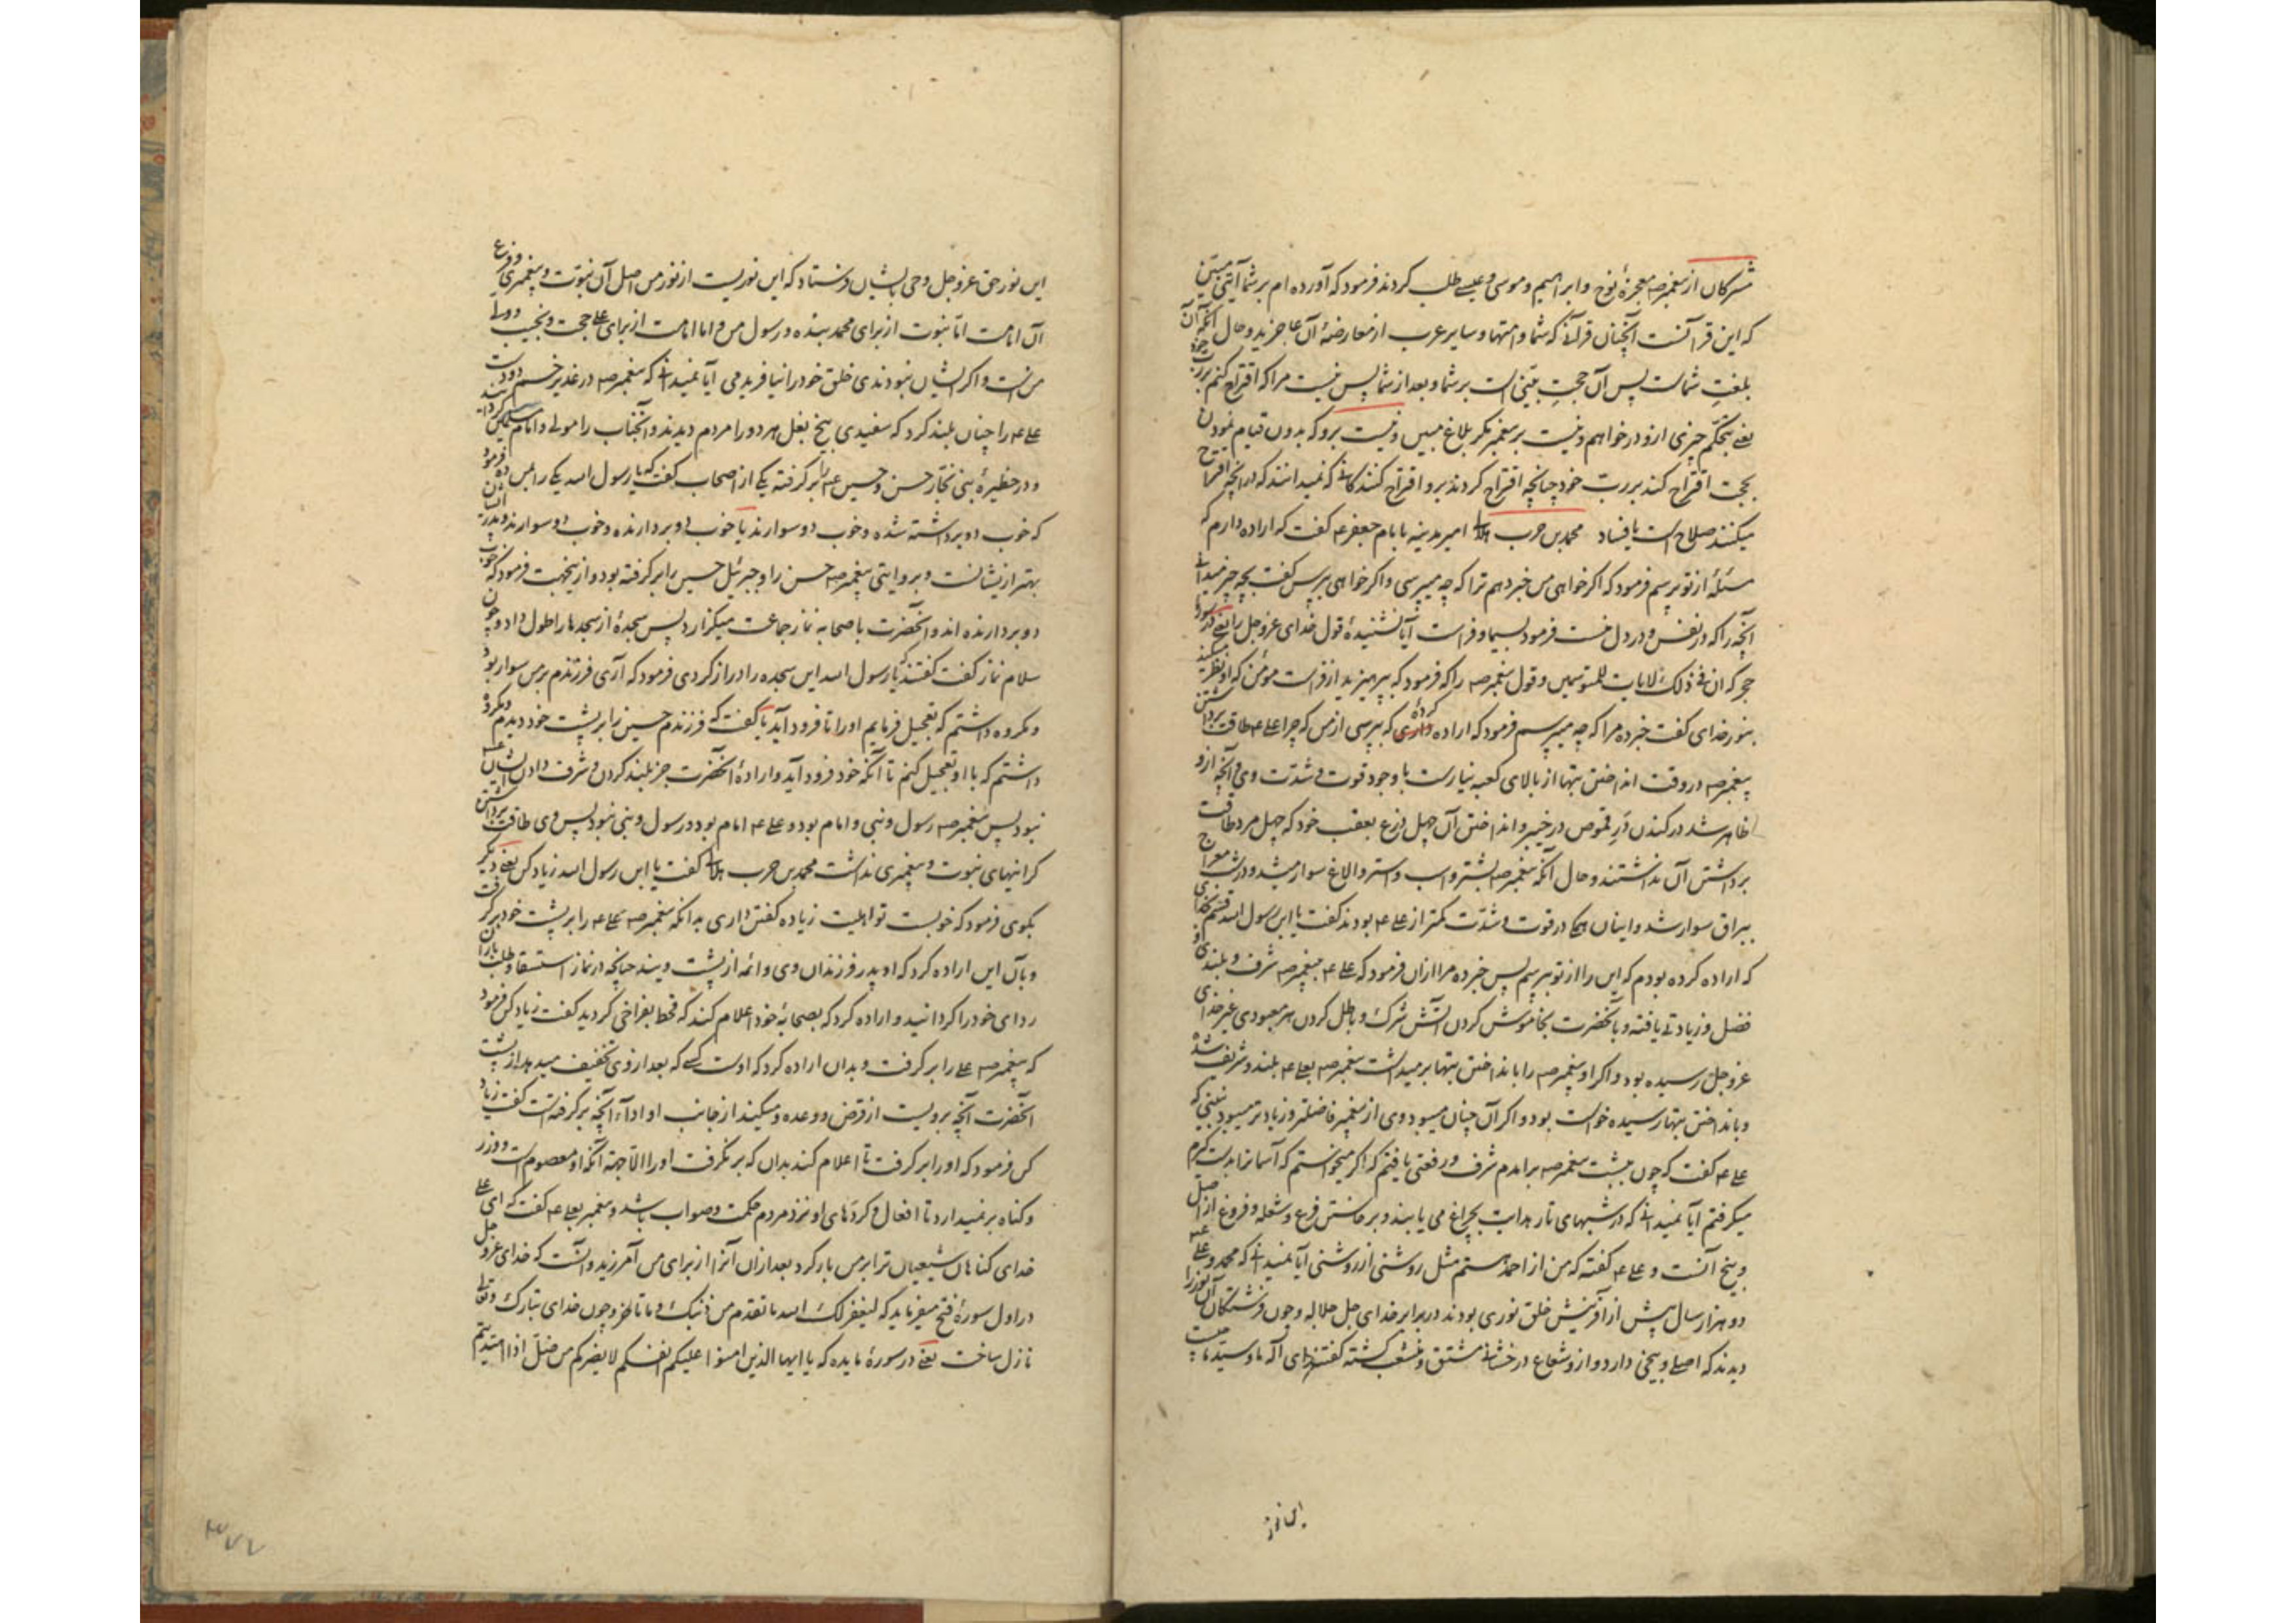 مشرکان از پیغمبر صه معجزهٔ نوح و ابراهیم و موسی و عیسی طلب کردند فرمود که آورده ام بر شما آیتی مبین
که این قرآنست آنچنان قرآنی که شما و امتها و سایر عرب از معارضهٔ آن عاجزید و حال آنکه آن
بلغت شماست پس آن حجت بینی است بر شما و بعد از شما پس نیست مرا که اقتراح کنم بر رب خود
یعنی بتحکم چیزی ازو درخواهم و نیست بر پیغمبر مکر بلاغ مبین و نیست برو که بدون قیام نمودن
بحجت اقتراح کند بر رب خود چنانچه اقتراح کردند برو اقتراح کنندکانی که نمیدانند که در آنچه اقتراح
میکنند صلاح است یا فساد محمد بن حرب هلالی امیر مدینه بامام جعفر عه کفت که اراده دارم که
مسئلهٔ از تو پرسم فرمود که اکر خواهی من خبر دهم ترا که چه میپرسی و اکر خواهی بپرس کفت بچه چیز میدانی
آنچه را که در نفس و در دل منست فرمود بسیما و فراست آیا نشنیدهٔ قول خدای عز و جل را یعنی در سورهٔ
حجر که ان فی ذلک لایات للمتوسمین و قول پیغمبر صه را که فرمود که بپرهیزید از فراست مؤمن که او نظر میکند
بنور خدای کفت خبر ده مرا که چه میپرسم فرمود که اراده کرده که بپرسی از من که چرا علی عه طاقت برداشتن
پیغمبر صه در وقت انداختن بتها از بالای کعبه نیارست با وجود قوت و شدت وی و آنچه ازو
ظاهر شد در کندن در قموص در خیبر و انداختن آن چهل ذرع بعقب خود که چهل مرد طاقت
برداشتن آن نداشتند و حال آنکه پیغمبر صه بشتر و اسب و استر و الاغ سوار میشد و در شب معراج
ببراق سوار شد و اینان همکی در قوت و شدت کمتر از علی عه بودند کفت یا ابن رسول الله قسم بخدای
که اراده کرده بودم که این را از تو بپرسم پس خبر ده مرا ازان فرمود که علی عه بپیغمبر صه شرف و بلندی و
فضل و زیادتی یافته و بآنحضرت بخاموش کردن آتش شرک و باطل کردن هر معبودی غیر خدای
عز و جل رسیده بود و اکر او پیغمبر صه را بانداختن بتها بر میداشت پیغمبر صه بعلی عه بلند و شریف شده
و بانداختن بتها رسیده خواست بود و اکر آن چنان میبود وی از پیغمبر فاضلتر و زیادتر میبود نبینی که
علی عه کفت که چون بپشت پیغمبر صه برآمدم شرف و رفعتی یافتم که اکر میخواستم که آسمانرا بدست کیرم
میکرفتم آیا نمیدانی که در شبهای تار هدایت بچراغ می یابند و برخاستن فرع و شعله و فروغ از اصل
و بیخ آنست و علی عه کفته که من از احمد هستم مثل روشنی از روشنی آیا نمیدانی که محمد و علی عه
دو هزار سال پیش از آفرینش خلق نوری بودند در برابر خدای جل جلاله و چون فرشتکان آن نور را
دیدند که اصلی و بیخی دارد و ازو شعاع درخشانی مشتق و منشعب کشته کفتند ای آله ما و سید ما چیست
این نور
این نور حق عز و جل وحی بایشان فرستاد که این نوریست از نور من اصل آن نبوت و پیغمبری و فرع
آن امامت اما نبوت از برای محمد بنده و رسول من و اما امامت از برای علی حجت و نجیب و ولی
من است و اکر ایشان نبودندی خلق خود را نیافریدمی آیا نمیدانی که پیغمبر صه در غدیر خم دو دست
علی عه را چنان بلند کرد که سفیدی بیخ بغل هر دو را مردم دیدند و آنجناب را مولی و امام مسلمین کردانید
و در حظیرهٔ بنی نجار حسن و حسین عه را بر کرفته یکی از اصحاب کفت که یا رسول الله یکی را بمن ده فرمود
که خوب دو برداشته شده و خوب دو سوارند یا خوب دو بردارنده و خوب دو سوارند و پدر ایشان
بهتر از ایشانست و بروایتی پیغمبر صه حسن را و جبرئیل حسین را بر کرفته بود و از ینجهت فرمود که خوب
دو بردارنده اند و آنحضرت با صحابه نماز جماعت میکزارد پس سجدهٔ از سجدها را طول داد و چون
سلام نماز کفت کفتند که یا رسول الله این سجده را دراز کردی فرمود که آری فرزندم بر من سوار بود
و مکروه داشتم که تعجیل فرمایم او را تا فرود آید یا کفت که فرزندم حسین را بر پشت خود دیدم و مکروه
داشتم که با او تعجیل کنم تا آنکه خود فرود آید و ارادهٔ آنحضرت جز بلند کردن و شرف دادن ایشان عه
نبود پس پیغمبر صه رسول و نبی و امام بود و علی عه امام بود و رسول و نبی نبود پس وی طاقت برداشتن
کرانیهای نبوت و پیغمبری نداشت محمد بن حرب هلالی کفت یا ابن رسول الله زیاد کن یعنی دیکر
بکوی فرمود که خوبست تو اهلیت زیاده کفتن داری بدانکه پیغمبر صه علی عه را بر پشت خود بر کرفت
و بآن این اراده کرد که او پدر فرزندان وی و ائمه از پشت ویند چنانچه در نماز استسقا و طلب باران
ردای خود را کردانید و اراده کرد که بصحابهٔ خود اعلام کند که قحط بفراخی کردید کفت زیاد کن فرمود
که پیغمبر صه علی را بر کرفت و بدان اراده کرد که اوست کسی که بعد از وی تخفیف میدهد از پشت
آنحضرت آنچه برویست از قرض و وعده و میکند از جانب او اداء آنچه بر کرفتست کفت زیاد
کن فرمود که او را بر کرفت تا اعلام کند بدان که بر نکرفت او را الا جهة آنکه او معصوم است و وزر
و کناه بر نمیدارد تا افعال و کردهای او نزد مردم حکمت و صواب باشد و پیغمبر بعلی عه کفت که ای علی
خدای کناهان شیعیان ترا بر من بار کرد بعد ازان آنرا از برای من آمرزید و آنست که خدای عز و جل
در اول سورهٔ فتح میفرماید که لیغفر لک الله ما تقدم من ذنبک و ما تاخر و چون خدای تبارک و تعالی
نازل ساخت یعنی در سورهٔ مایده که یا ایها الذین امنوا علیکم انفسکم لا یضرکم من ضل اذا اهتدیتم